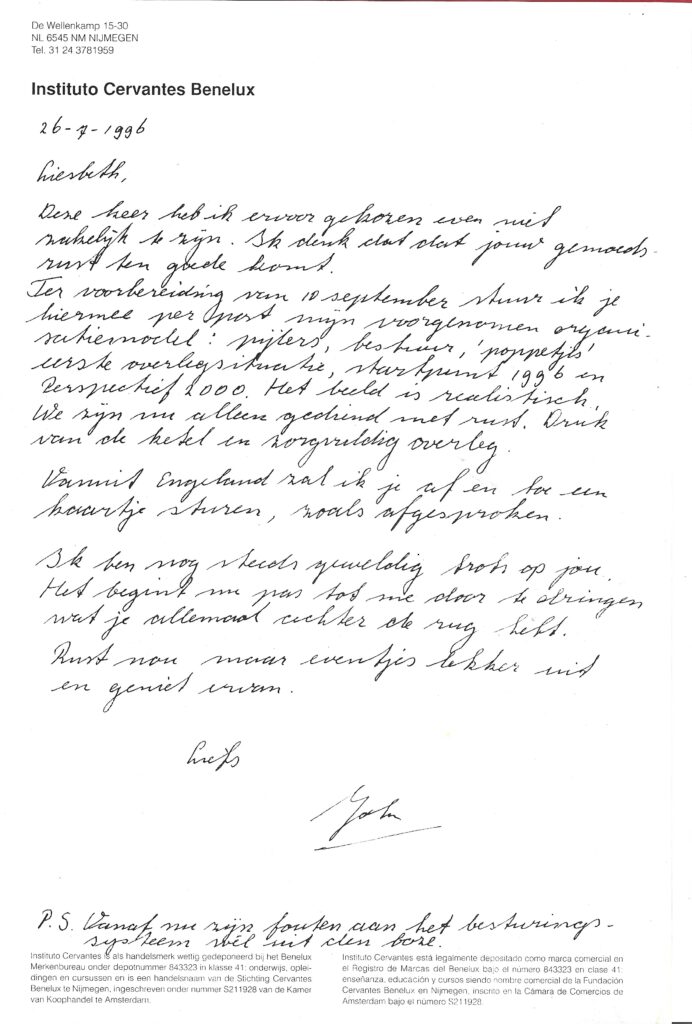 De Wellenkamp 15-30
NL 6545 NM NIJMEGEN
Tel. 31 24 3781959
Instituto Cervantes Benelux
26-7-1996
Liesbeth,
Deze keer heb ik ervoor gekozen even niet
zakelijk te zijn. Ik denk dat dat jouw gemoeds-
rust ten goede komt.
Ter voorbereiding van 10 september stuur ik je
hiermee per post mijn voorgenomen organi-
satiemodel: pijlers, bestuur, 'poppetjes'
eerste overlegsituatie, startpunt 1996 en
Perspectief 2000. Het beeld is realistisch.
We zijn nu alleen gediend met rust. Druk
van de ketel en zorgvuldig overleg.
Vanuit Engeland zal ik je af en toe een
kaartje sturen, zoals afgesproken.
Ik ben nog steeds geweldig trots op jou.
Het begint nu pas tot me door te dringen
wat je allemaal achter de rug hebt.
Rust nou maar eventjes lekker uit
en geniet ervan.
Liefs
John
P.S. Vanaf nu zijn fouten aan het besturings-
systeem wél uit den boze.
Instituto Cervantes is als handelsmerk wettig gedeponeerd bij het Benelux
Merkenbureau onder depotnummer 843323 in klasse 41: onderwijs, oplei-
dingen en cursussen en is een handelsnaam van de Stichting Cervantes
Benelux te Nijmegen, ingeschreven onder nummer S211928 van de Kamer
van Koophandel te Amsterdam.
Instituto Cervantes está legalmente depositado como marca comercial en
el Registro de Marcas del Benelux bajo el número 843323 en clase 41:
enseñanza, educación y cursos siendo nombre comercial de la Fundación
Cervantes Benelux en Nijmegen, inscrito en la Cámara de Comercios de
Amsterdam bajo el número S211928.